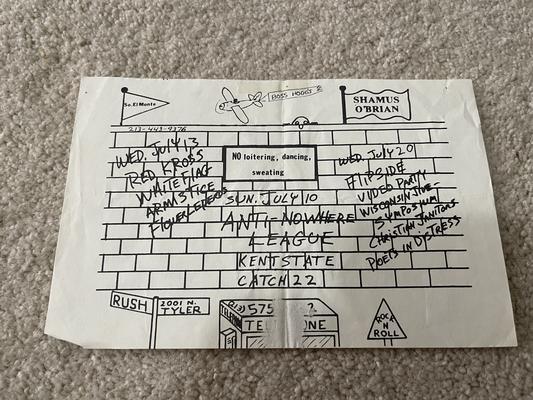 So. El Monte
BOSS HOGGS
SHAMUS
O'BRIAN
213-443-9376
WED. JULY 13
RED KROSS
WHITE FLAG
ARMISTICE
FLOWER LEPERDS
NO loitering, dancing,
sweating
SUN. JULY 10
ANTI-NOWHERE
LEAGUE
KENT STATE
CATCH 22
WED. JULY 20
FLIPSIDE
VIDEO PARTY
WISCONSIN JIVE-
SYMPOSIUM
CHRISTIAN JANITORS
POETS IN DISTRESS
RUSH
2001 N.
TYLER
(213) 575
ROCK
N
ROLL